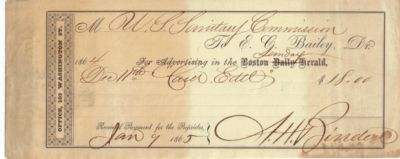 OFFICE, 103 WASHINGTON ST.
M U. S. Sanitary Commission
To E. G. Bailey, Dr.
Sunday
1864 For Advertising in the Boston Daily Herald,
Dec 11th $18.00
Received Payment for the Proprietor,
Jan 9 1865